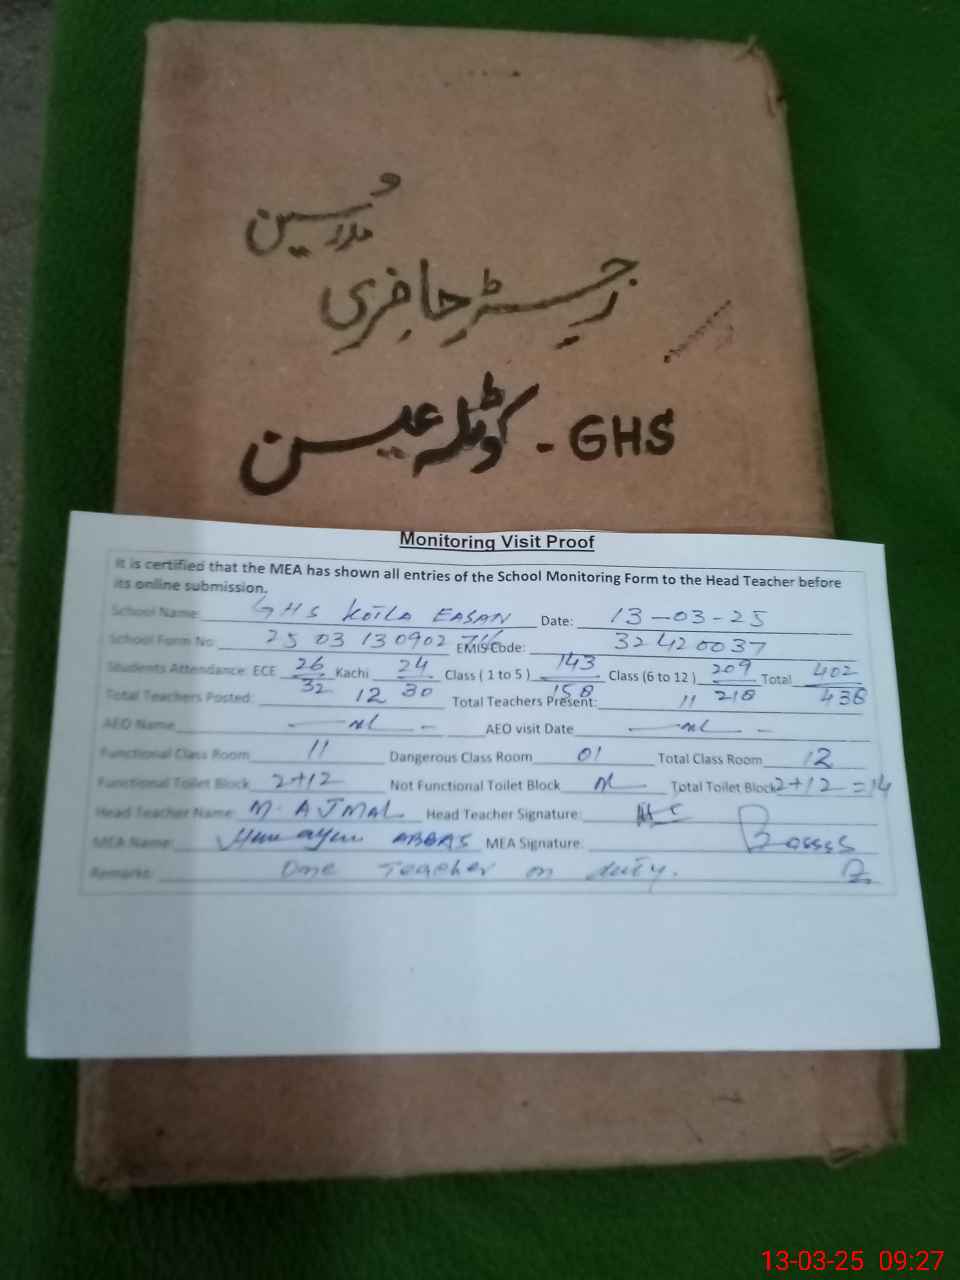 مدرسین
رجسٹر حاضری
GHS - کوٹلہ عیسن
Monitoring Visit Proof
It is certified that the MEA has shown all entries of the School Monitoring Form to the Head Teacher before
its online submission.
School Name: GHS KOTLA EASAN Date: 13-03-25
School Form No: 25 03 130902 EMIS Code: 32420037
Students Attendance: ECE 26/32 Kachi 24/30 Class ( 1 to 5 ) 143/158 Class (6 to 12 ) 209/218 Total 402/438
Total Teachers Posted: 12 Total Teachers Present: 11
AEO Name NL AEO visit Date NL
Functional Class Room 11 Dangerous Class Room 01 Total Class Room 12
Functional Toilet Block 2+12 Not Functional Toilet Block NL Total Toilet Block 2+12=14
Head Teacher Name: M. AJMAL Head Teacher Signature:
MEA Name: Humayun ABBAS MEA Signature:
Remarks: One Teacher on duty.
13-03-25 09:27